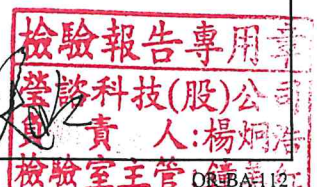 檢驗報告專用章
瑩諮科技(股)公司
負責人:楊炯浩
檢驗室主管:鍾
QR-BA-112